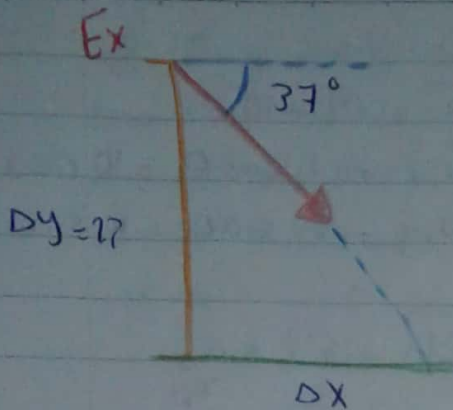 Ex
37°
Dy = 27
DX